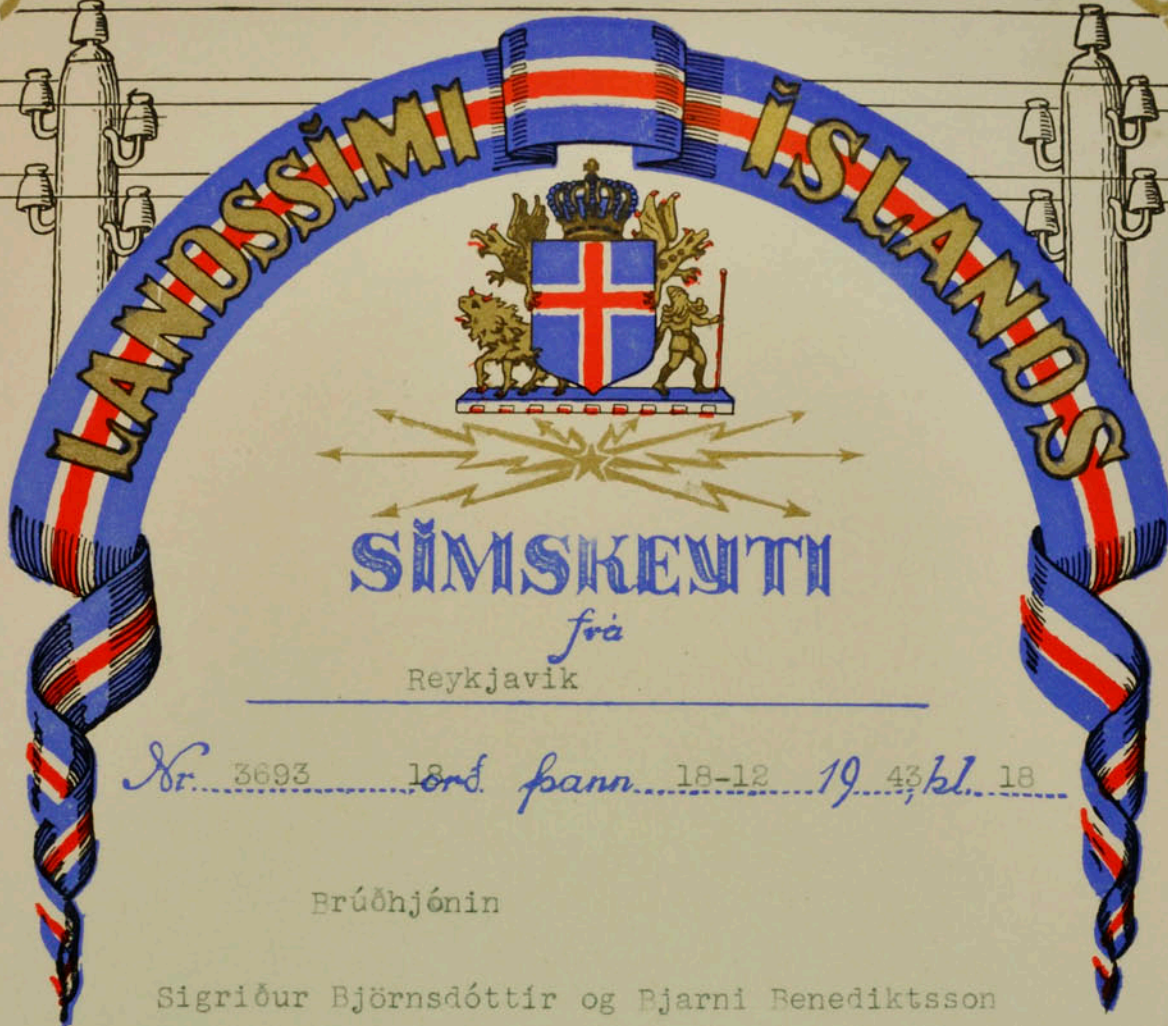 LANDSSÍMI ÍSLANDS
SÍMSKEYTI
frá
Reykjavik
Nr. 3693 18 orð. þann 18-12 19 43, kl. 18
Brúðhjónin
Sigriður Björnsdóttir og Bjarni Benediktsson